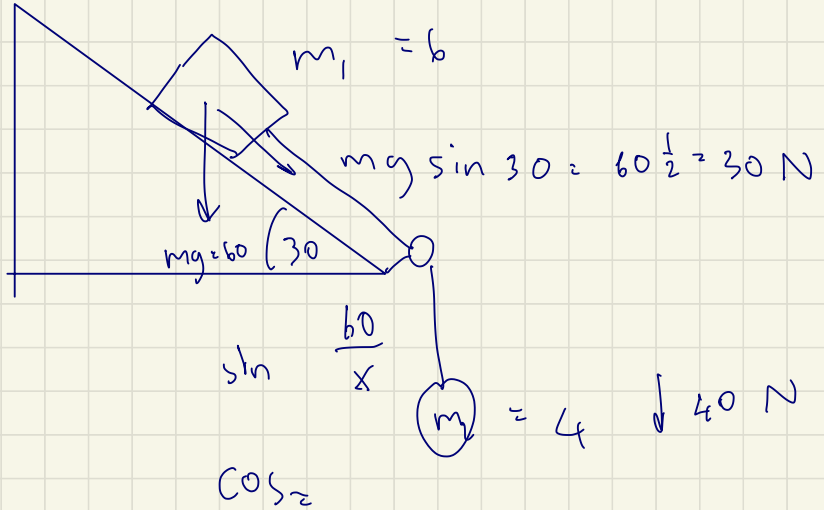 m₁ = 6
mg sin 30 = 60 1/2 = 30 N
mg = 60
30
sin 60/x
m = 4 ↓ 40 N
cos =